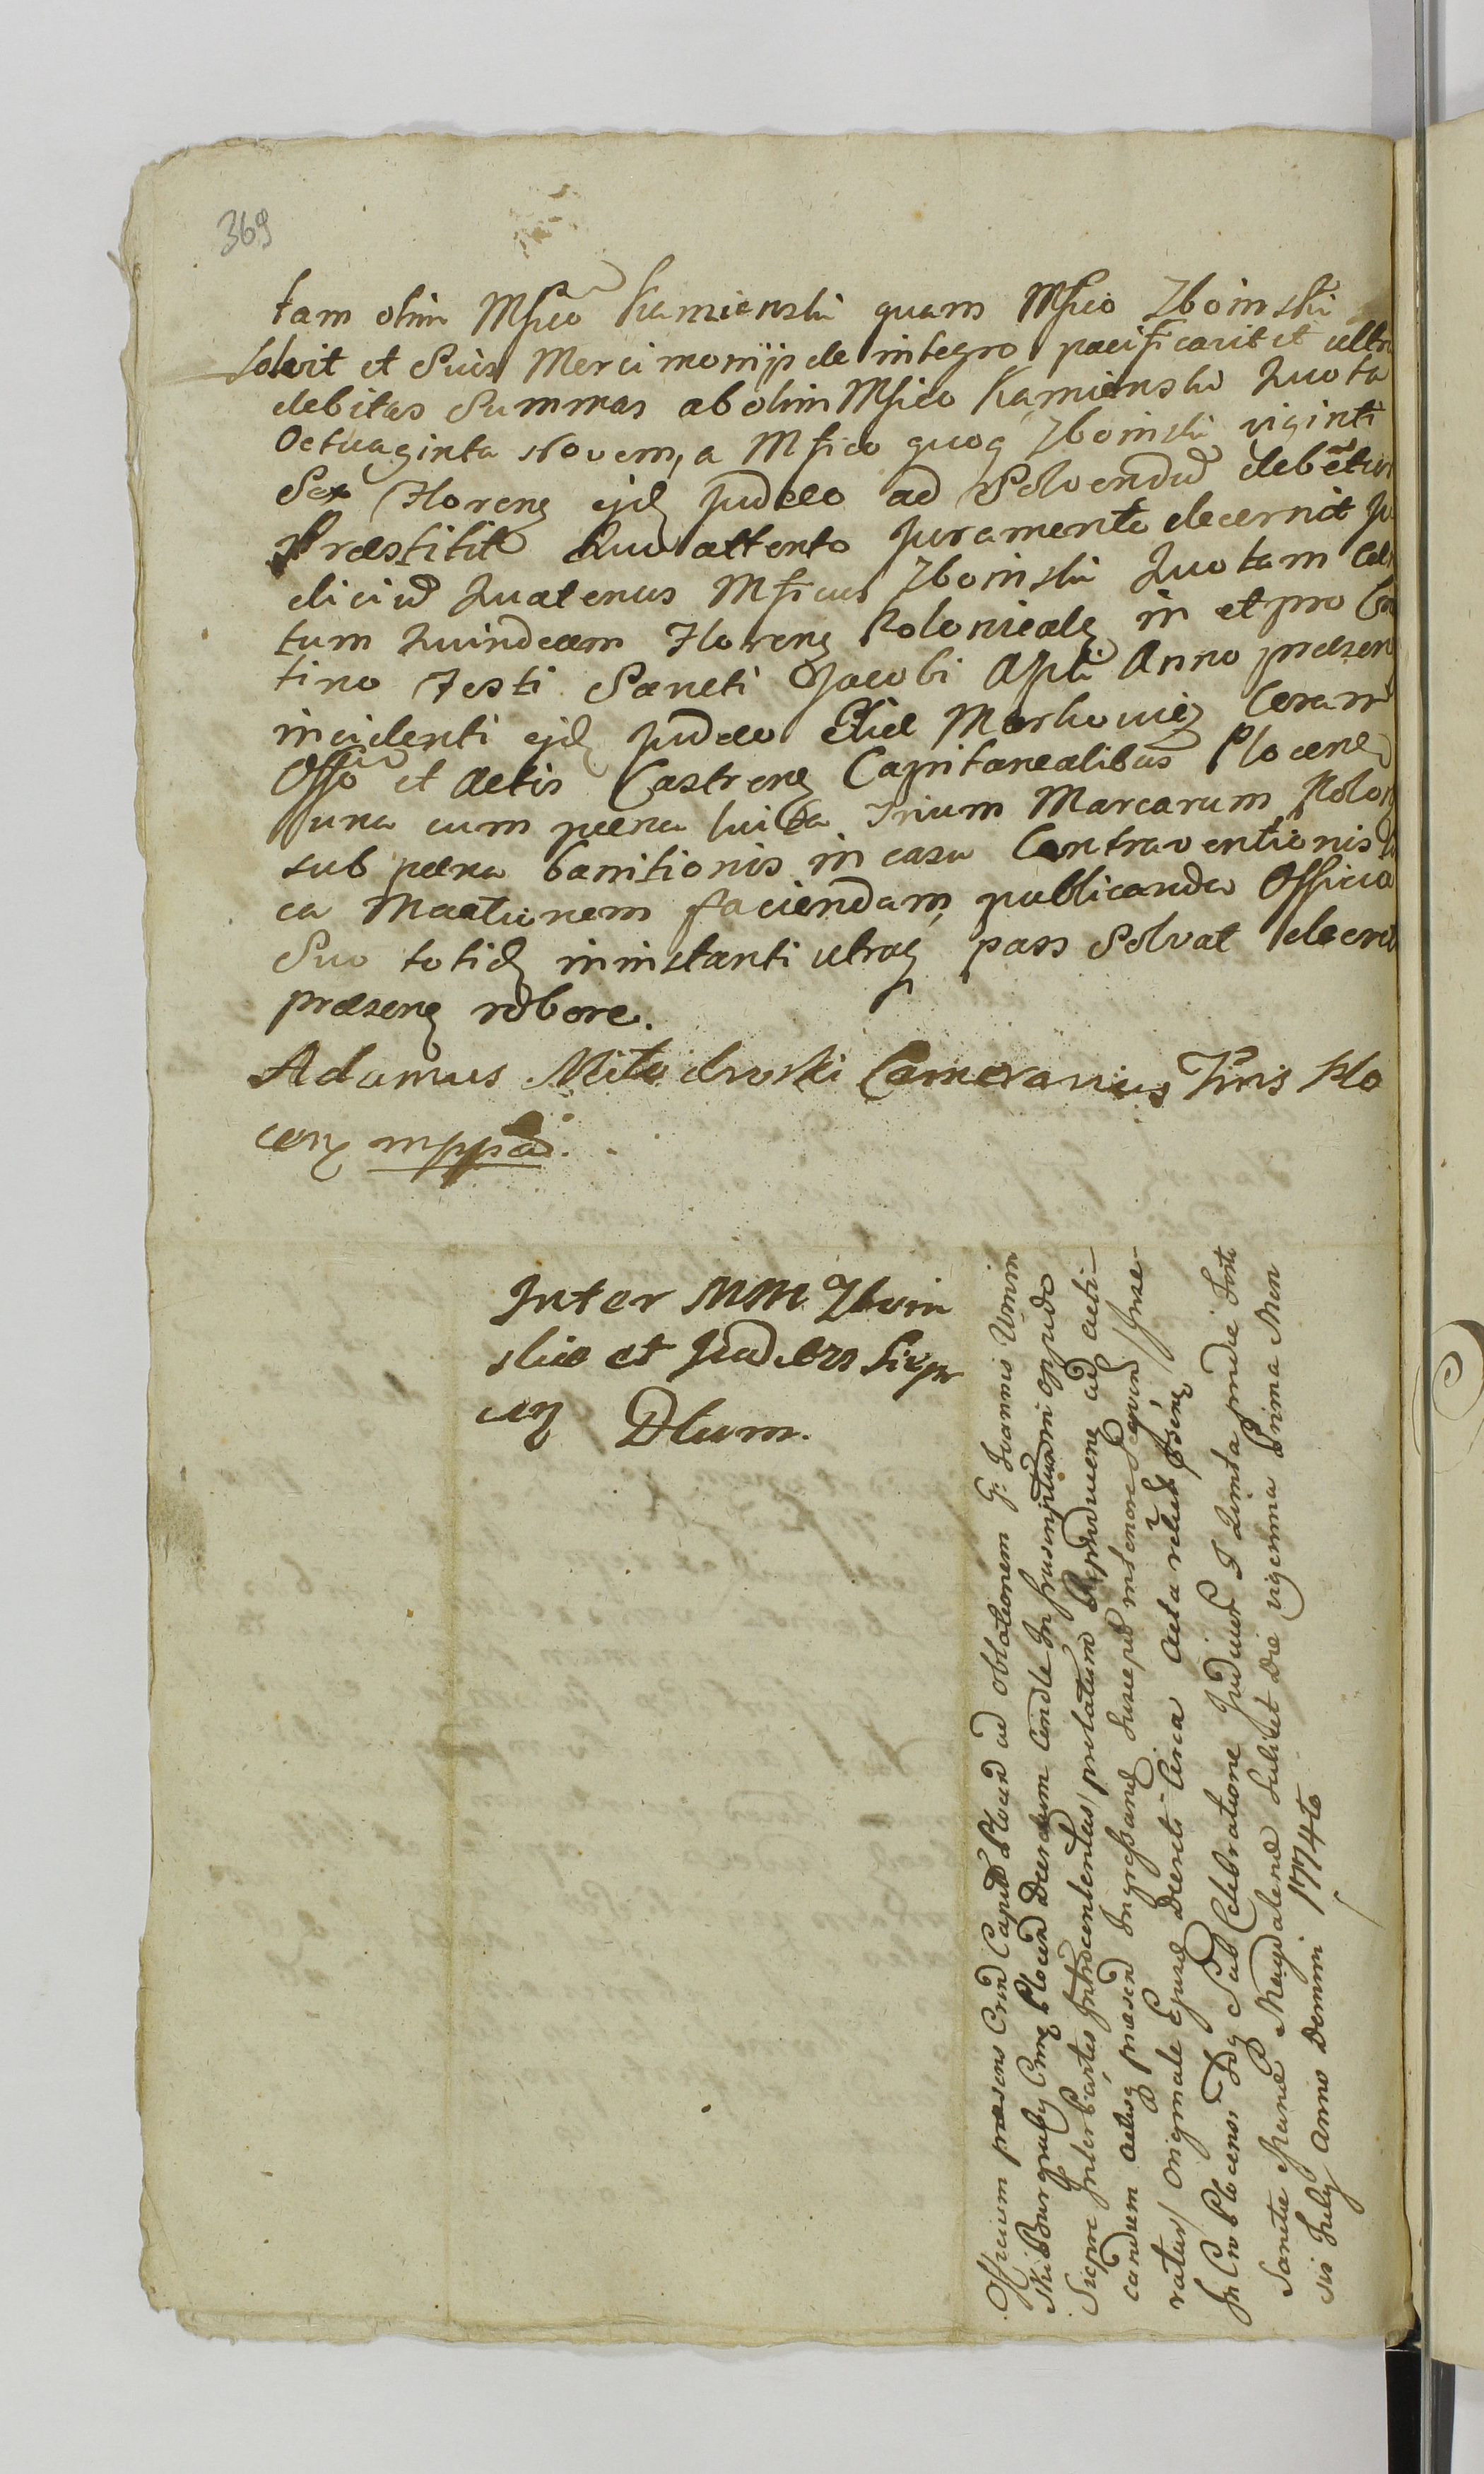 369
tam olim Mfico Kamienski quam Mfico Zboinski
solvit et Suis Mercimonijs de integro pacificavit et ultra
debitas Summas ab olim Mfico Kamienski Quota
Octuaginta Novem, a Mfico quoq Zboinski viginti
Sex Floren ejd Judaeo ad Solvendu debetur
Praestitit Quo attento Juramento decernit Ju
diciu Quatenus Mficus Zboinski Quotam Cen
tum Quindecem Floren Polonicale in et pro Cra
tino Festi Sancti Jacobi Apli Anno praesen
incidenti ejd Judaeo Eliae Markowicz Coram
Offo et Actis Castren Capitanealibus Plocen
una cum paena luita Trium Marcarum Polon
sub paena banitionis in casu Contraventionis
ca Mactionem faciendam, publicanda Officio
Suo totid ininstanti utraq pars Solvat decret
praesen robore.
Adamus Camerarius Tris Plo
cen mppa.
Inter MM Zboin
ski et Judaeo Sierp
cen Dtum.
Officium praesens Crem Capitle Plocen ad oblationem G. Joannis Umin
ski Burgraby Cren Plocen Decretum Condle In frascriptum in oppido
Sierpc Inter Partes Introcontentas prolatum ad acti
candum actisq praesen Ingrossand Suscepit
ratur Original Ejusd Decreti Circa acta
In Cro Plocensi Sub Celebratione Judicior F Quinta pridie Festi
Sanctae Mariae Magdalenae Scilicet Die vigesima Prima Men
sis July Anno Domini 1774to